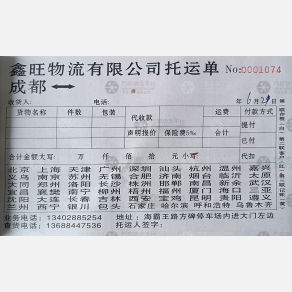 鑫旺物流有限公司托运单 No:0001074
成都 ↔
收货人: 电话: 年 6月29日
货物名称 件数 包装 代收款 运费 付款方式
提付
声明报价 保险费5‰ 合计 已付
合计金额大写: 万 仟 佰 拾 元 小写 代扣
北京 上海 天津 广州 深圳 汕头 杭州 温州 嘉兴
义乌 南京 苏州 无锡 合肥 济南 烟台 临沂 太原
大同 郑州 洛阳 长沙 株洲 邯郸 南昌 新余 武汉
宜昌 襄樊 南宁 柳州 梧州 福州 宝鸡 厦门 西安
沈阳 大连 长春 吉林 西安 宝鸡 昆明 贵阳 遵义
兰州 西宁 银川 包头 石家庄 哈尔滨 呼和浩特 乌鲁木齐
业务电话: 13402885254 地址: 海霸王路方碑停车场内进大门左边
查货电话: 13688447536 托运人签字: